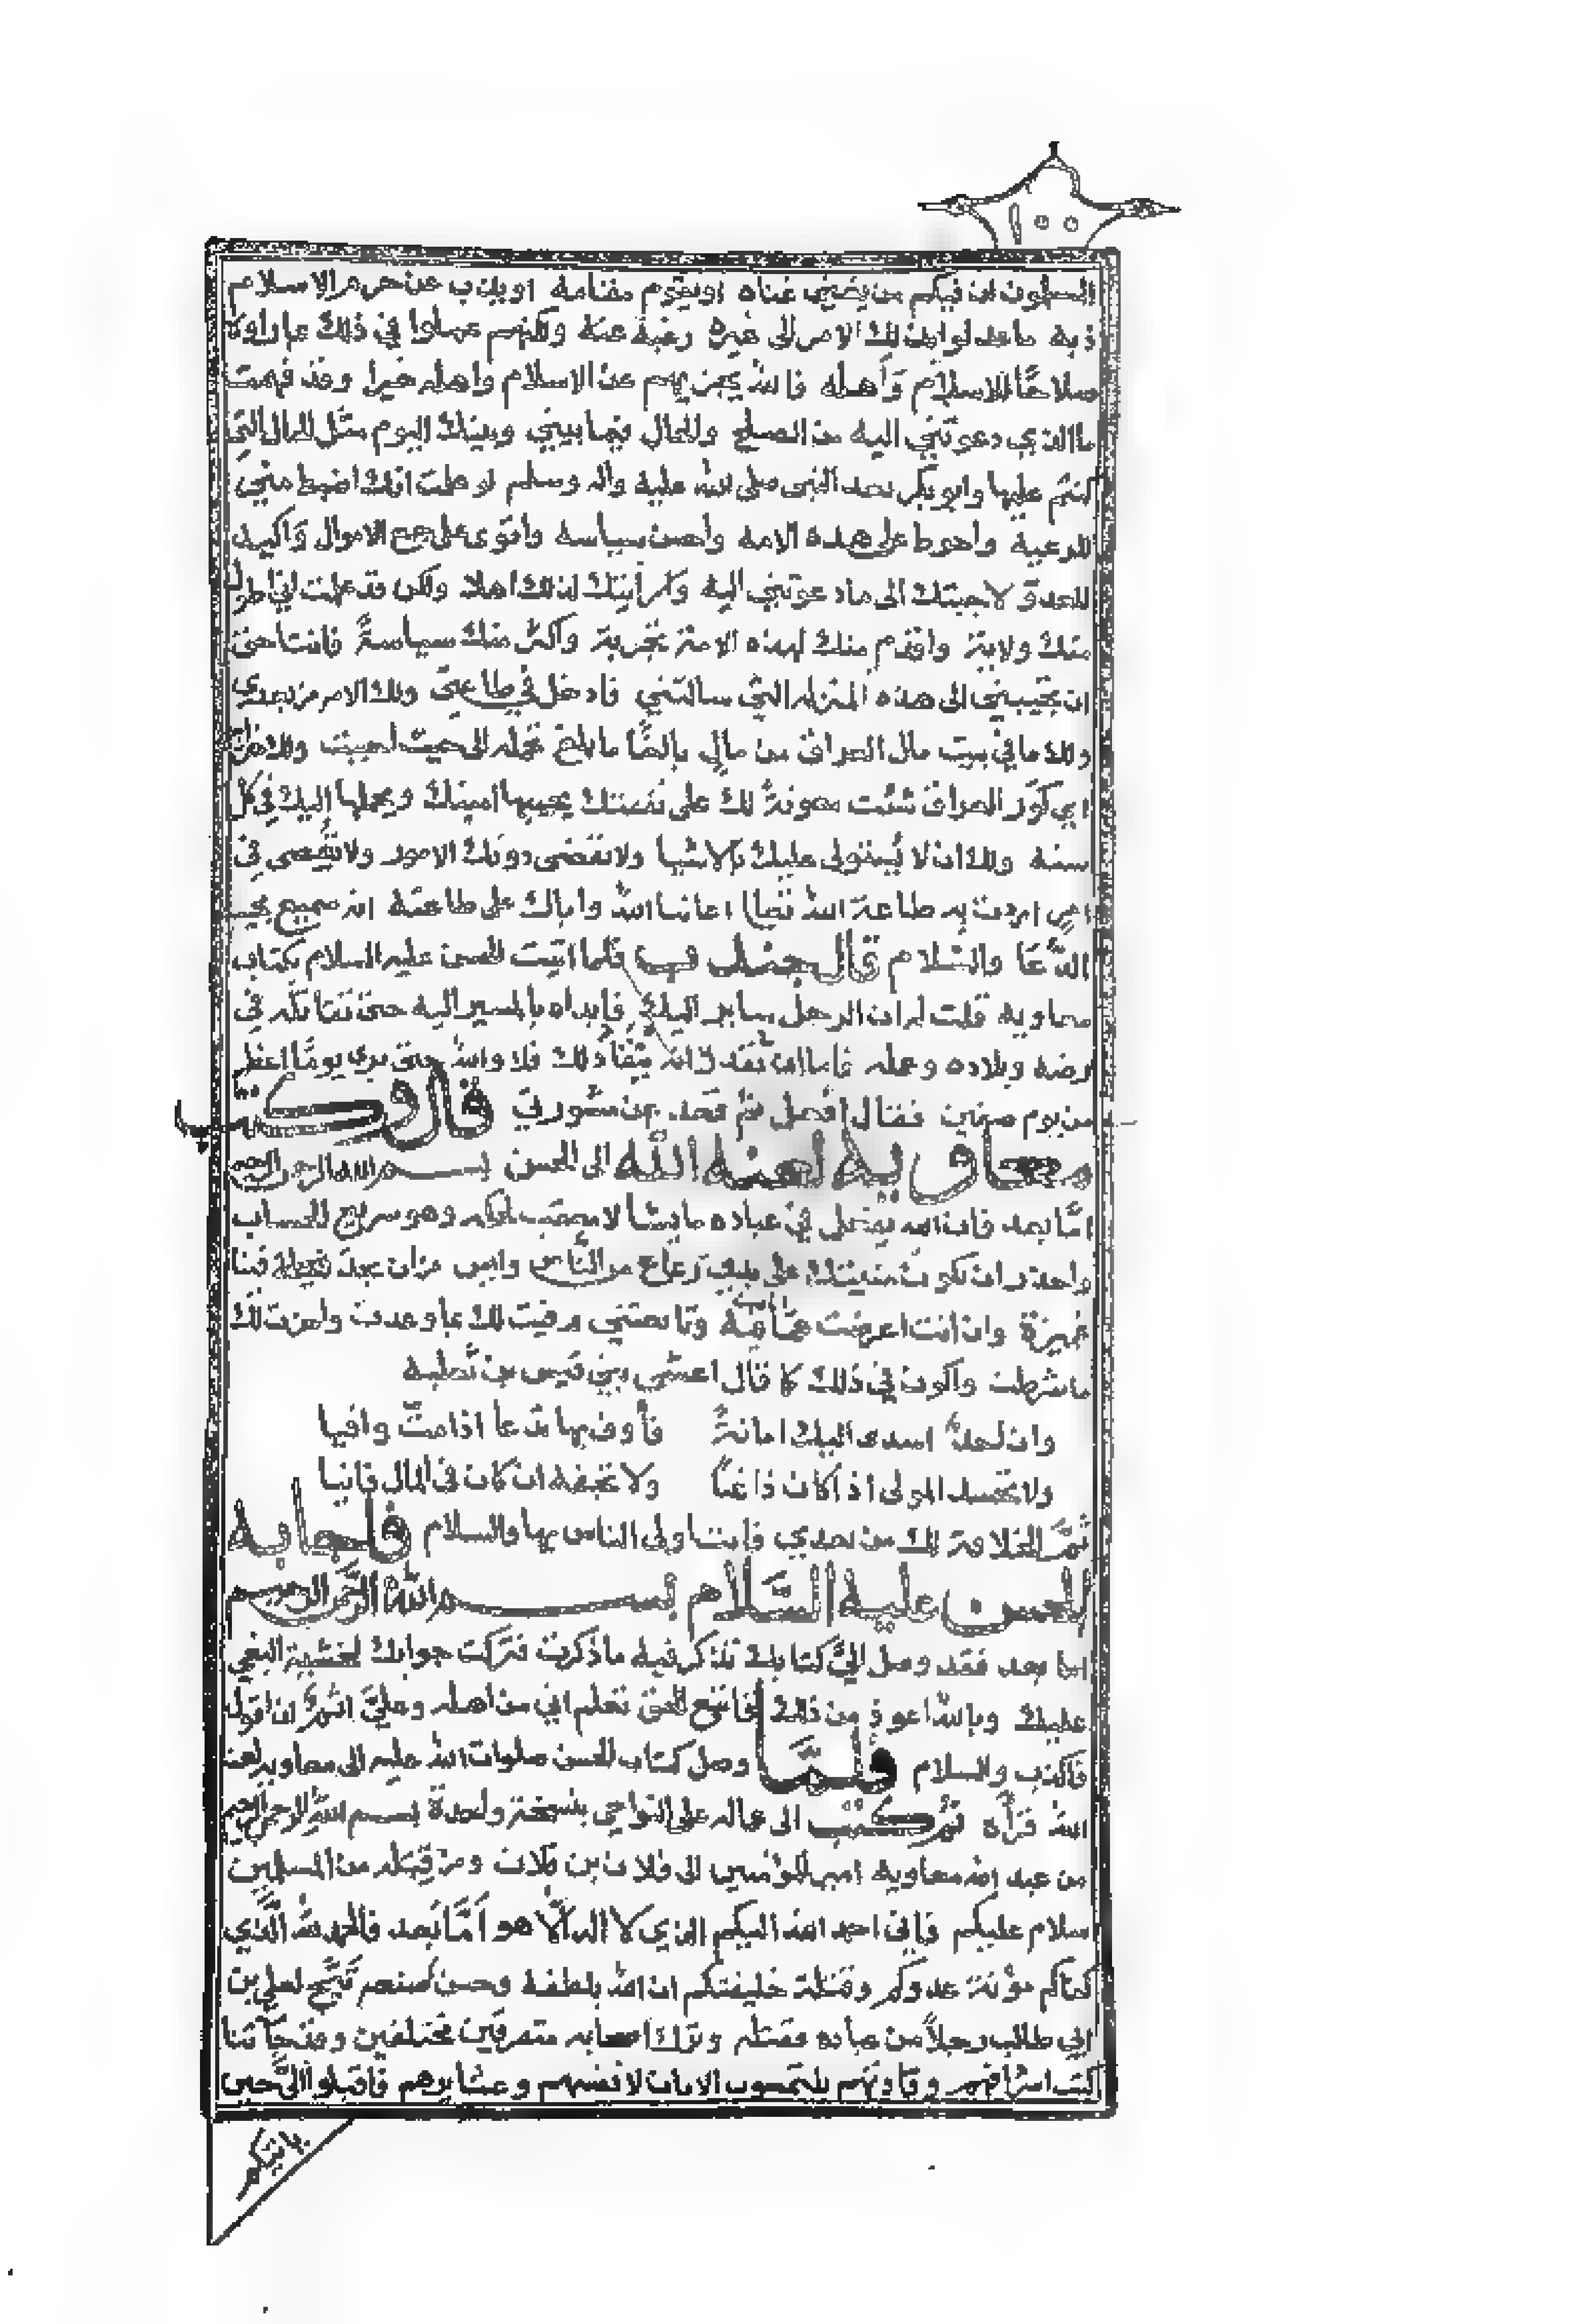 ١٥٥
المسلمون ان فيكم من يغني غناه او يقوم مقامه او يذب عن حرم الاسلام
ذبه ما عدلوا بذلك الامر الى غيره رغبة عنه ولكنهم عملوا في ذلك بما راوه
صلاحًا للاسلام وأهله فالله يجزيهم عن الاسلام واهله خيرا وقد فهمت
ما الذي دعوتني اليه من الصلح والحال فيما بيني وبينك اليوم مثل الحال التي
كنتم عليها وابو بكر بعد النبي صلى الله عليه واله وسلم لو علمت انك اضبط مني
للرعية واحوط على هذه الامه واحسن سياسه واقوى على جمع الاموال واكيد
للعدو لاجبتك الى ما دعوتني اليه ورأيتك لذلك اهلا ولكن قد علمت اني اطول
منك ولاية واقدم منك لهذه الامة تجربة واكثر منك سياسةً فانت احق
ان تجيبني الى هذه المنزله التي سالتني فادخل في طاعتي ولك الامر من بعدي
ولك ما في بيت مال العراق من مال بالغًا ما بلغ تحمله الى حيث احببت ولك خراج
اي كور العراق شئت معونةً لك على نفقتك يجبيها امينك ويحملها اليك في كل
سنه ولك ان لا يُستولى عليك بالاشيا ولا تقضى دونك الامور ولا تُعصى في
امر اردت به طاعة الله تعالى اعاننا الله واياك على طاعته انه سميع مجيب
الدُّعَا والسلام قال جندب فلما اتيت الحسن عليه السلام بكتاب
معاوية قلت له ان الرجل ساير اليك فابداه بالمسير اليه حتى تقاتله في
ارضه وبلاده وعمله فاما ان تقدر انه ينقاد لك فلا والله حتى يرى يومًا اعظم
من يوم صفين فقال افعل ثم قعد عن مشورتي قال وكتب
معاويه لعنه الله الى الحسن بسم الله الرحمن الرحيم
امّا بعد فان الله يفعل في عباده ما يشا لا معقب لحكمه وهو سريع الحساب
واحذر ان تكون منيتك على يدي رعاع من الناس وايس من ان تجد فينا
غميزة وان انت اعرضت عمّا انت فيه وبايعتني وفيت لك بما وعدت واجزت لك
ما شرطت واكون في ذلك كما قال اعشى بني قيس بن ثعلبه
وان احدٌ اسدى اليك امانةً فأوف بها تدعا اذا متّ وافيا
ولا تحسد المولى اذا كان ذا غنًا ولا تجفه ان كان في المال فانيا
ثمّ الخلافة لك من بعدي فانت اولى الناس بها والسلام فاجابه
الحسن عليه السّلام بسم الله الرحمن الرحيم
اما بعد فقد وصل اليّ كتابك تذكر فيه ما ذكرت فتركت جوابك لخشية البغي
عليك وبالله اعوذ من ذلك فاتبع الحق تعلم اني من اهله وعليّ اثم ان اقول
فاكذب والسلام فلمّا وصل كتاب الحسن صلوات الله عليه الى معاوية لعنه
الله قرأه ثم كتب الى عماله على النواحي بنسخة واحدة بسم الله الرحمن الرحيم
من عبد الله معاوية امير المؤمنين الى فلان بن فلان ومن قبله من المسلمين
سلام عليكم فاني احمد الله اليكم الذي لا اله الّا هو أمّا بعد فالحمد لله الذي
كفاكم مؤنة عدوكم وقتلة خليفتكم ان الله بلطفه وحسن صنعه تيّح لعلي بن
ابي طالب رجلاً من عباده فقتله وترك اصحابه متفرقين مختلفين وقد جاتنا
كتب اشرافهم وقادتهم يلتمسون الامان لانفسهم وعشايرهم فاقبلوا اليّ حين
ياتيكم